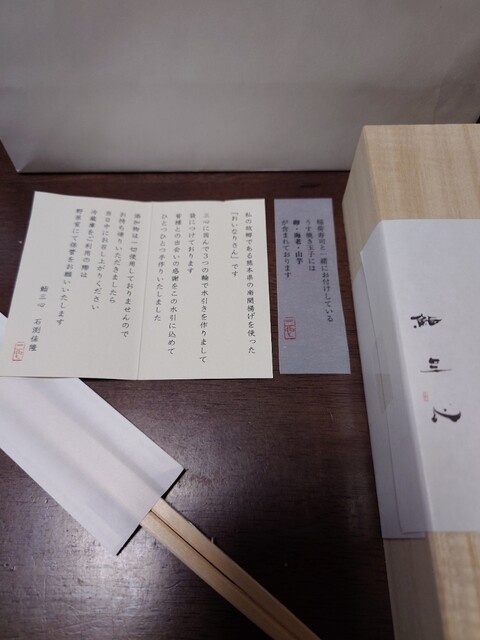 稲荷寿司と一緒にお付けしている
うす焼き玉子には
卵・海老・山芋
が含まれております
私の故郷である熊本県の南関揚げを使った
『おいなりさん』です
三心に因んで3つの輪で水引きを作りまして
箱につけております
皆様との出会いの感謝をこの水引に込めて
ひとつひとつ手作りいたしました
添加物は一切使用しておりませんので
お持ち帰りいただきましたら
当日中にお召し上がりください
冷蔵庫をご利用の際は
野菜室にて保管をお願いいたします
鮨三心 石渕佳隆
鮨三心